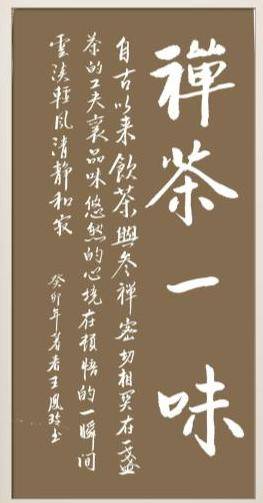 禪茶一味
自古以来飲茶與參禪密切相关在一盏
茶的工夫裏品味悠然的心境在頓悟的一瞬间
雲淡輕风清静和寂
癸卯年若春王鳳玲书